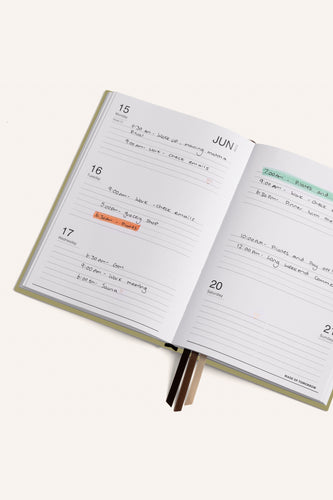 15
Monday
JUN
6:30 am - Wake up - morning mantra
Ritual
9:00am - Work - check emails
16
Tuesday
9:00am - Work - check emails
5:00pm Grocery shop
6:30am - Pilates
17
Wednesday
6:30am - Gym
9:00am - Work meeting
8:00pm - Sauna
7:00am - Pilates and
9:00am - Work - check
6:30pm - Dinner with
10:00am - Pilates and Day off
12:00am - Long weekend
20
Saturday
Sunday
MADE OF TOMORROW